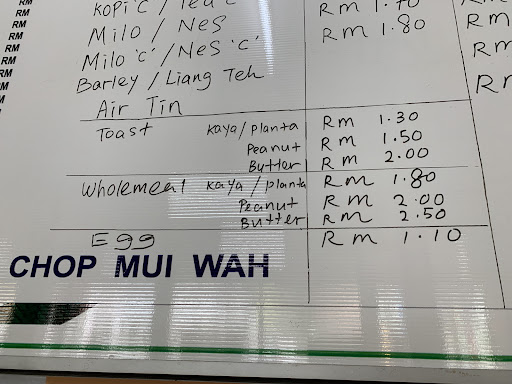 RM
RM
RM
RM
RM
RM
Kopi 'c' / Tea 'c'
Milo / Nes RM 1.70
Milo 'c' / Nes 'c' RM 1.80
Barley / Liang Teh
Air Tin
Toast Kaya/Planta RM 1.30
Peanut RM 1.50
Butter RM 2.00
Wholemeal Kaya/planta RM 1.80
Peanut RM 2.00
Butter RM 2.50
Egg RM 1.10
CHOP MUI WAH